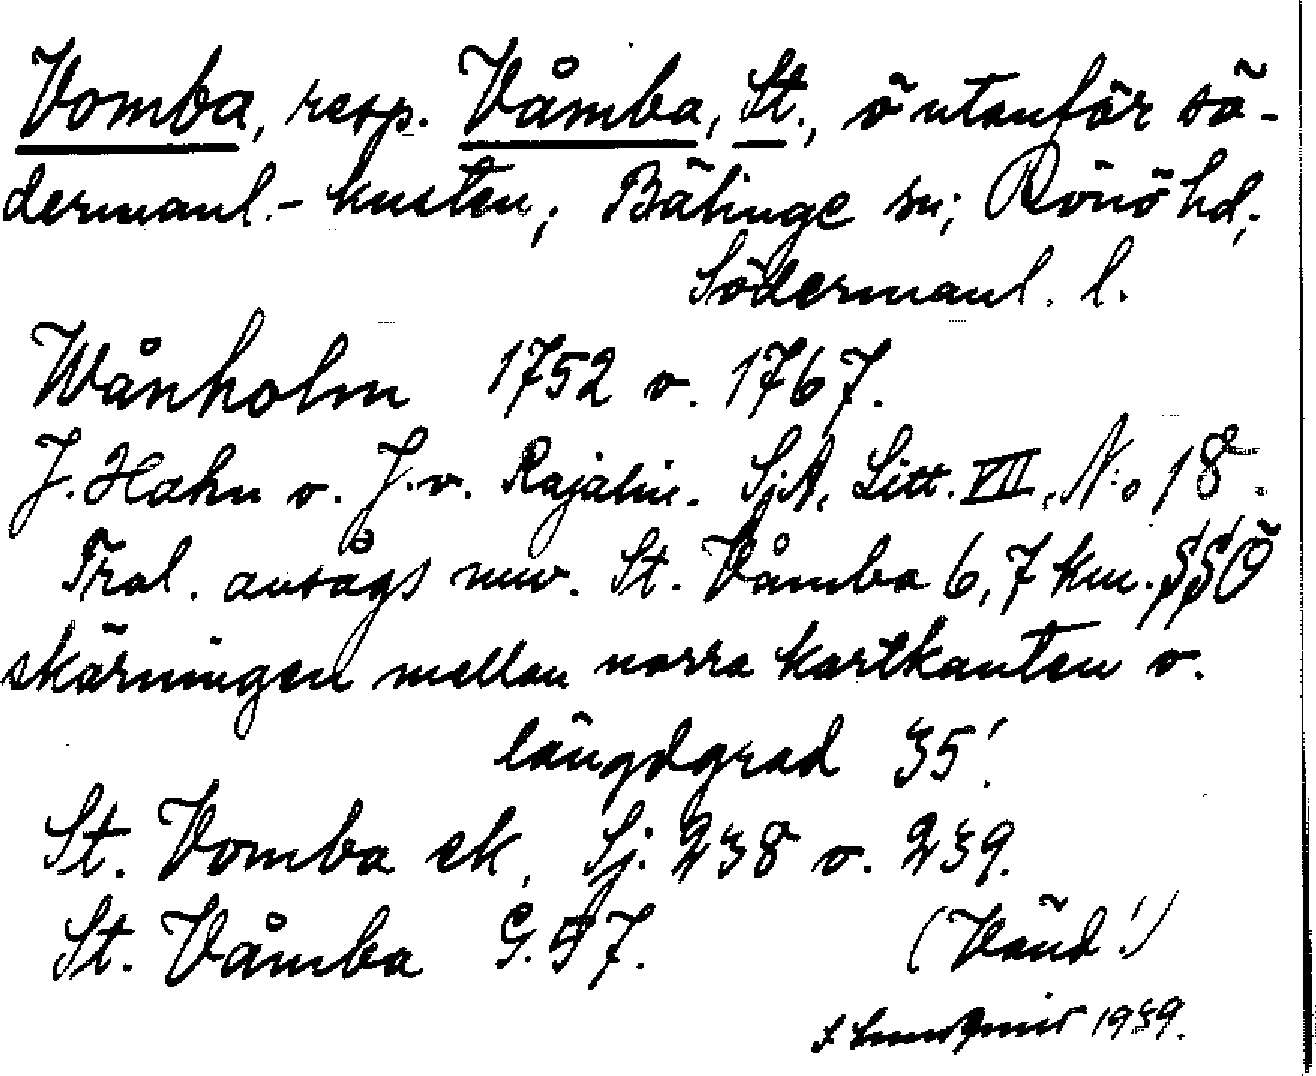 Vomba, resp. Våmba, St., ö utanför sö-
dermanl.- kusten, Bälinge sn; Rönö hd,
Södermanl. l.
Wånholm 1752 o. 1767.
J. Hahn o. J. v. Rajalin. SjA, Litt. VII, N:o 18.
Trol. avsågs nuv. St. Våmba 6,7 km. SSÖ
skärningen mellan norra kartkanten o.
längdgrad 35'.
St. Vomba sk, Sj. 238 o. 239.
St. Våmba G. 57.
(Vänd!)
1939.